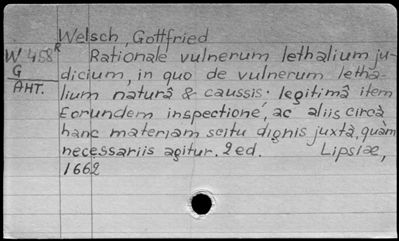 Welsch, Gottfried
W458R Rationale vulnerum lethalium ju-
G dicium, in quo de vulnerum letha-
AHT. lium naturâ & caussis: legitimâ item
Eorundem inspectione, ac aliis circà
hanc materiam scitu dignis juxtà, quàm
necessariis agitur. 2ed. Lipsiae,
1662